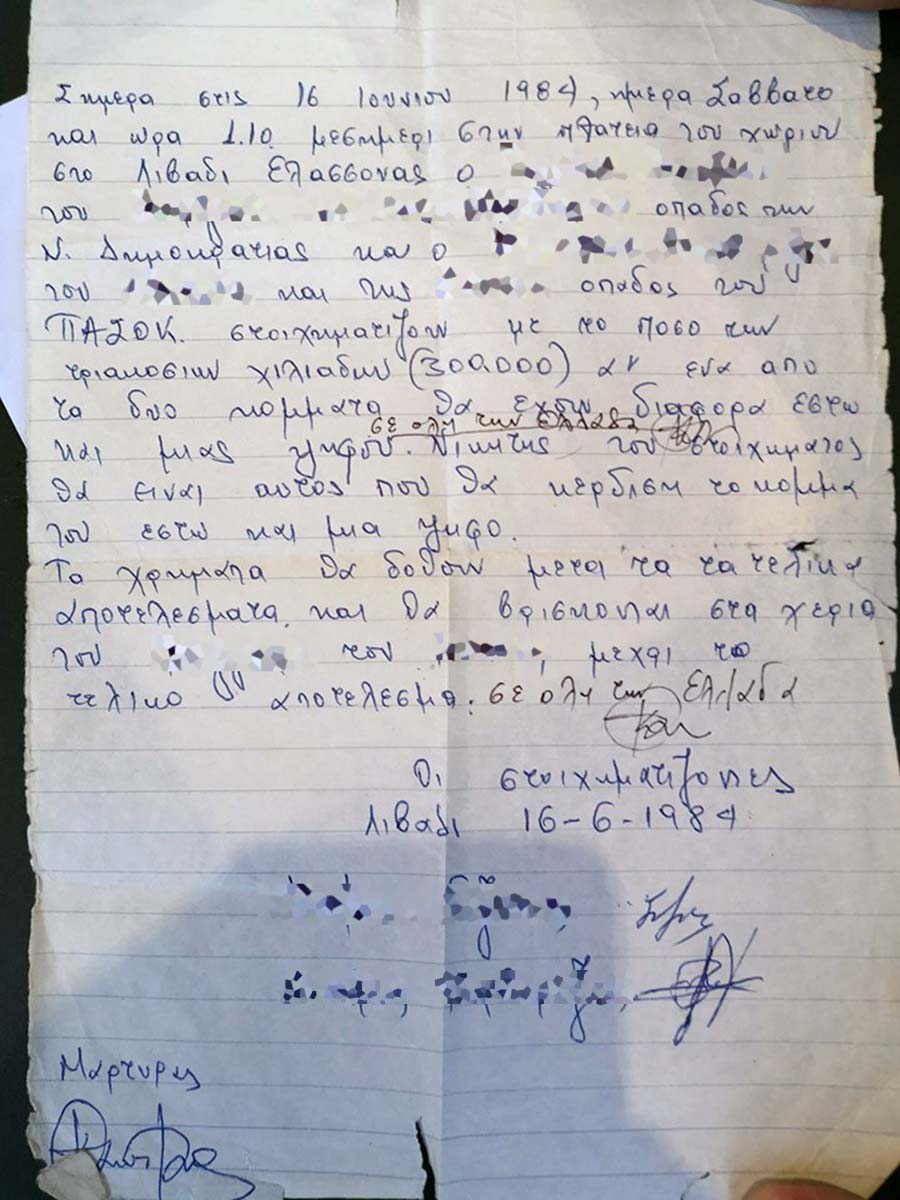 Σημερα στις 16 Ιουνιου 1984, ημερα Σαββατο
και ωρα 1.10 μεσημερι στην πλατεια του χωριου
στο Λιβαδι Ελασσονας ο
του οπαδος την
Ν. Δημοκρατιας και ο
του και της οπαδος του
ΠΑΣΟΚ. στοιχηματιζουν με το ποσο των
τριακοσιων χιλιαδων (300.000) αν ενα απο
τα δυο κομματα θα εχουν διαφορα εστω
σε ολη την Ελλαδα
και μιας ψηφου. Νικητης του στοιχηματος
θα ειναι αυτος που θα κερδιση το κομμα
του εστω και μια ψηφο.
Τα χρηματα θα δοθουν μετα τα τα τελικα
αποτελεσματα. και θα βρισκονται στα χερια
του του , μεχρι το
τελικο αποτελεσμα. σε ολη την Ελλαδα
Οι στοιχηματιζοντες
Λιβαδι 16-6-1984
Μαρτυρες